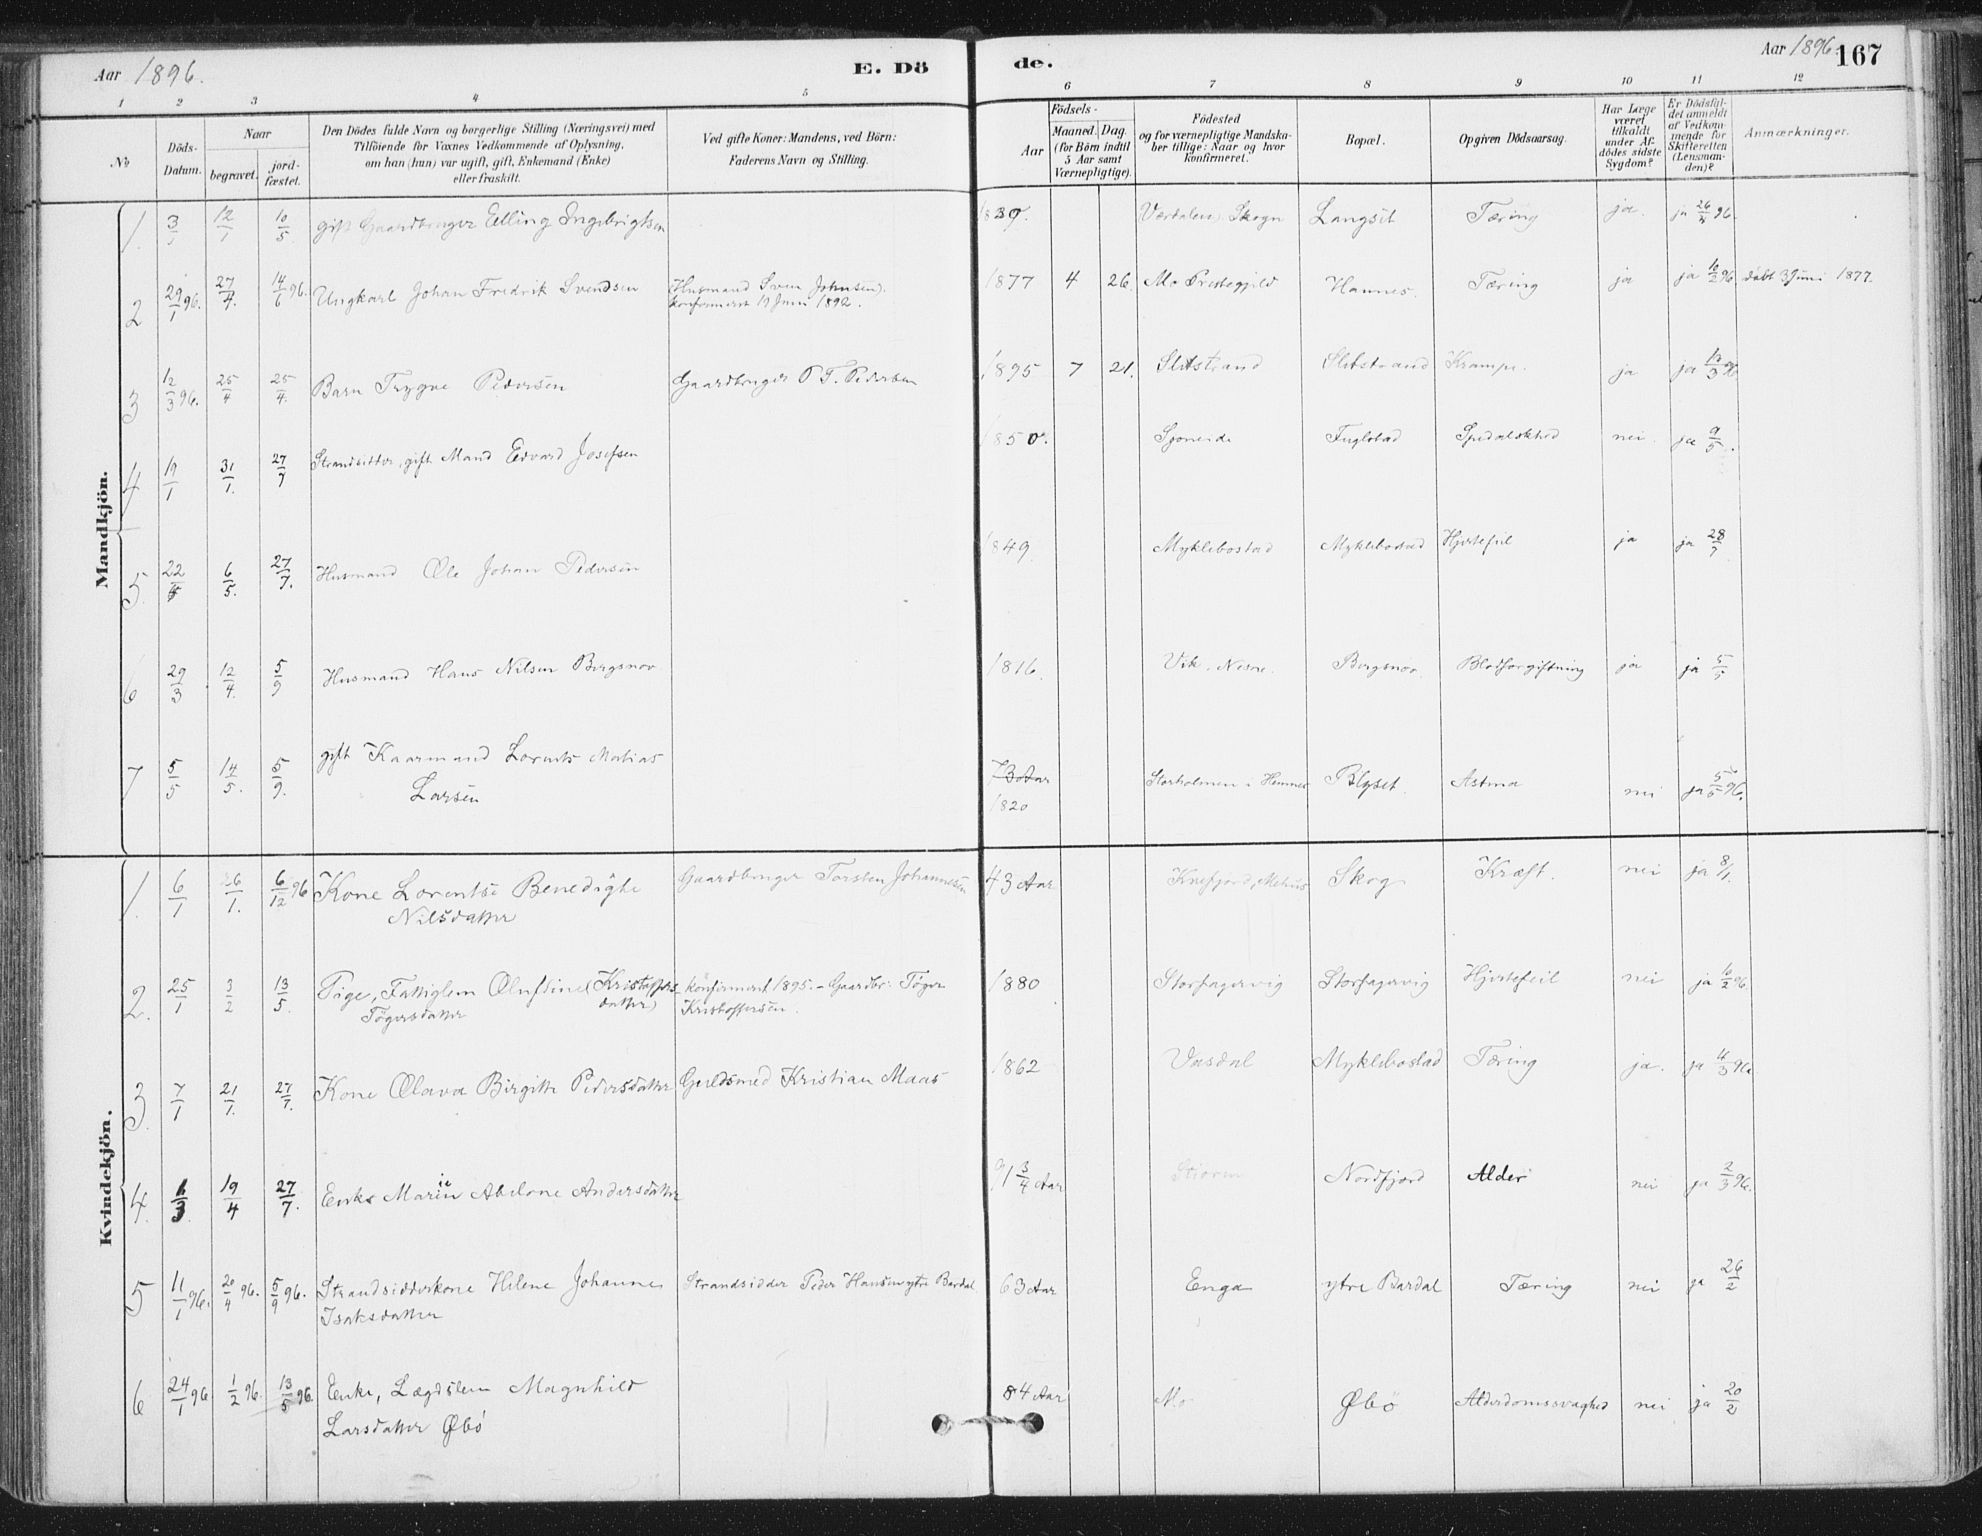 Aar 1896. E. Dö de. Aar 1896 167
1 2 3 4 5 6 7 8 9 10 11 12
No
Döds-Datum.
Naar
begravet. jordfæstet.
Den Dödes fulde Navn og borgerlige Stilling (Næringsvei) med
Tilföiende for Voxnes Vedkommende af Oplysning,
om han (hun) var ugift, gift, Enkemand (Enke)
eller fraskilt.
Ved gifte Koner: Mandens, ved Börn:
Faderens Navn og Stilling.
Födsels-
Aar Maaned. Dag.
(for Börn indtil 5 Aar samt Værnepligtige).
Födested
og for værnepligtige Mandskaber tillige: Naar og hvor Konfirmeret.
Bopæl.
Opgiven Dödsaarsag.
Har Læge været tilkaldt under Afdödes sidste Sygdom?
Er Dödsfaldet anmeldt af Vedkommende for Skifteretten (Lensmanden)?
Anmærkninger.
Mandkjön.
1. 3/1 12/1 10/5 gift Gaardbruger Elling Ingebrigtsen 1830. Værdalen, Skogn Langset Tæring ja. ja 26/4 96.
2 29/1 96. 27/4. 14/6 96. Ungkarl Johan Fredrik Svendsen (Husmand Sven Johnsen). 1877 4 26. Mo Prestegjeld Hannes. Tæring ja ja 10/2 96 døbt 3 Juni 1877.
konfirmeret 19 Juni 1892.
3 12/3 96. 25/4 25/4. Barn Trygve Pedersen Gaardbruger P T. Pedersen 1895 7 21. Sletstrand Sletstrand Krampe. ja ja 13/3 96
4 19/1 31/1. 27/7 Strandsidder, gift Mand Edvard Josefsen 1850. Sjoneide Fuglstad Spedalskhed nei. ja 9/5.
5. 22/4 6/5. 27/7. Husmand Ole Johan Pedersen 1849 Myklebostad Myklebostad Hjertefeil ja ja 28/7
6 29/3 12/4. 5/9 Husmand Hans Nilsen Bergsnov 1816. Vik, Nesne. Bergsnov. Blodforgiftning ja ja 5/5
7 5/5 14/5. 5/9. gift Kaarmand Lorents Matias 73 Aar Storholmen i Hemnes Blyset. Astma nei ja 5/5 96.
Larsen 1820
Kvindekjön.
1. 6/1 26/1. 6/12 96 Kone Lorentse Benedigte Gaardbruger Torsten Johannesen 43 Aar Skog Kræft. nei ja 8/1.
Nilsdatter
2. 25/1 3/2 13/5. Pige, Fattiglem Olufsine (Kristoffers konfirmeret 1895. - Gaardbr: Töger 1880 Storfagervig Storfagervig Hjertefeil nei ja 10/2 96.
Tögersdatter datter) Kristoffersen.
3. 7/1 21/1. 27/7. Kone Olava Birgitte Pedersdatter Guldsmed Kristian Maas 1862 Vasdal Myklebostad Tæring ja. ja 4/3 96.
4. 1/3. 19/4 27/7. Enke Marie Abelone Andersdatter 91 3/4 Aar Nordfjord Alder nei ja 2/3 96.
5 11/1 96. 20/4 96. 5/9 96. Strandsidderkone Helene Johanne Strandsidder Peder Hansen ytre Bardal 63 Aar Enga ytre Bardal Tæring nei ja 26/2
Isaksdatter
6 24/1 96. 1/2 96. 13/5 96. Enke, Lægdslem Magnhild 84 Aar Mo Øbö Alderdomssvaghed nei ja 20/2
Larsdatter Øbö